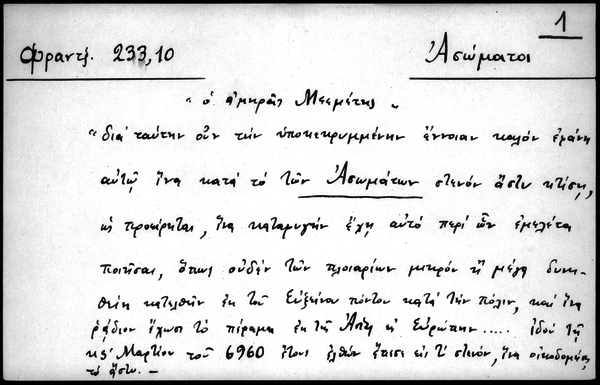 1
Φραντζ. 233,10 Ἀσώματοι
"ὁ ἀμηρᾶς Μεεμέτης"
"διὰ ταύτην οὖν τὴν ὑποκεκρυμμένην ἔννοιαν καλὸν ἐφάνη
αὐτῷ ἵνα κατὰ τὸ τῶν Ἀσωμάτων στενὸν ἄστυ κτίσῃ,
ὡς προείρηται, ἵνα καταφυγὴν ἔχῃ αὐτὸ περὶ ὧν ἐμελέτα
ποιῆσαι, ὅπως οὐδὲν τῶν πλοιαρίων μικρὸν ἢ μέγα δυνη-
θείη κατελθεῖν ἐκ τοῦ Εὐξείνου πόντου κατὰ τὴν πόλιν, καὶ ἵνα
ῥᾴδιον ἔχωσι τὸ πέραμα ἐκ τῆς Ἀσίας εἰς Εὐρώπην ..... ἰδοὺ τῇ
κϛ' Μαρτίου τοῦ 6960 ἔτους ἐλθὼν ἔπεσε εἰς τὸ στενόν, ἵνα οἰκοδομήσῃ
τὸ ἄστυ. —